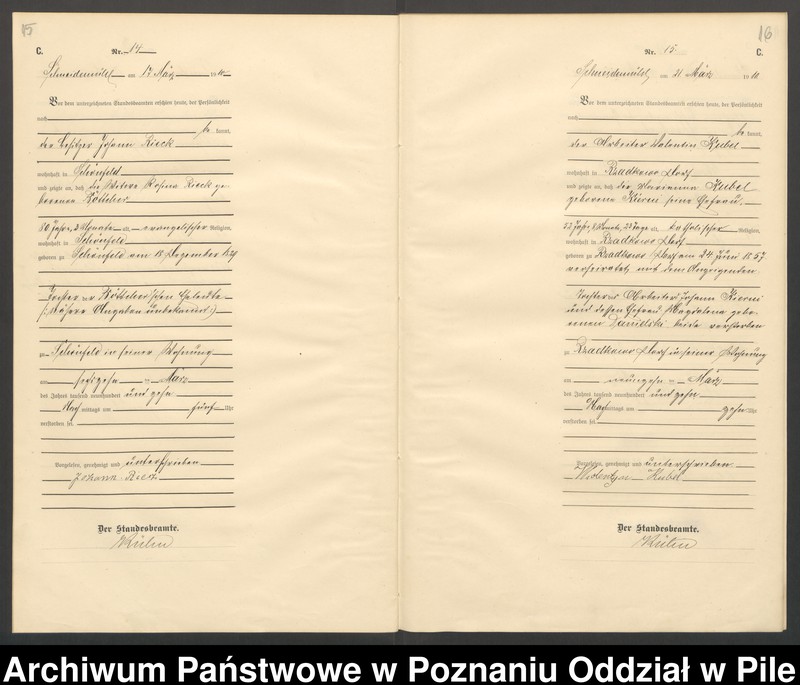 15
C.
Nr. 14
Schneidemühl am 17 März 1910
Vor dem unterzeichneten Standesbeamten erschien heute, der Persönlichkeit
nach
be kannt,
der Besitzer Johann Rieck
wohnhaft in Schönfeld
und zeigte an, daß die Witwe Rosina Rieck ge-
borene
80 Jahre, 2 Monate alt, evangelischer Religion,
wohnhaft in Schönfeld
geboren zu Schönfeld am 18 Dezember 1829
Tochter der
(: Nähere Angaben unbekannt :)
zu Schönfeld in seiner Wohnung
am sechszehn ten März
des Jahres tausend neunhundert und zehn
Nach mittags um fünf Uhr
verstorben sei.
Vorgelesen, genehmigt und unterschrieben
Johann Rieck
Der Standesbeamte.
16
C.
Nr. 15.
Schneidemühl am 21 März 1910
Vor dem unterzeichneten Standesbeamten erschien heute, der Persönlichkeit
nach
be kannt,
der Arbeiter Valentin Kubel
wohnhaft in Dorf
und zeigte an, daß die Marianna Kubel
geborene seine Ehefrau,
52 Jahr, 8 Monate, 23 Tage alt, katholischer Religion,
wohnhaft in Dorf
geboren zu Dorf am 24. Juni 1857
verheiratet mit dem Anzeigenden
Tochter des Arbeiter Johann
und dessen Ehefrau Magdalena gebo-
renen beide verstorben
zu Dorf in seiner Wohnung
am neunzehn ten März
des Jahres tausend neunhundert und zehn
Nach mittags um zehn Uhr
verstorben sei.
Vorgelesen, genehmigt und unterschrieben
Kubel
Der Standesbeamte.
Archiwum Państwowe w Poznaniu Oddział w Pile